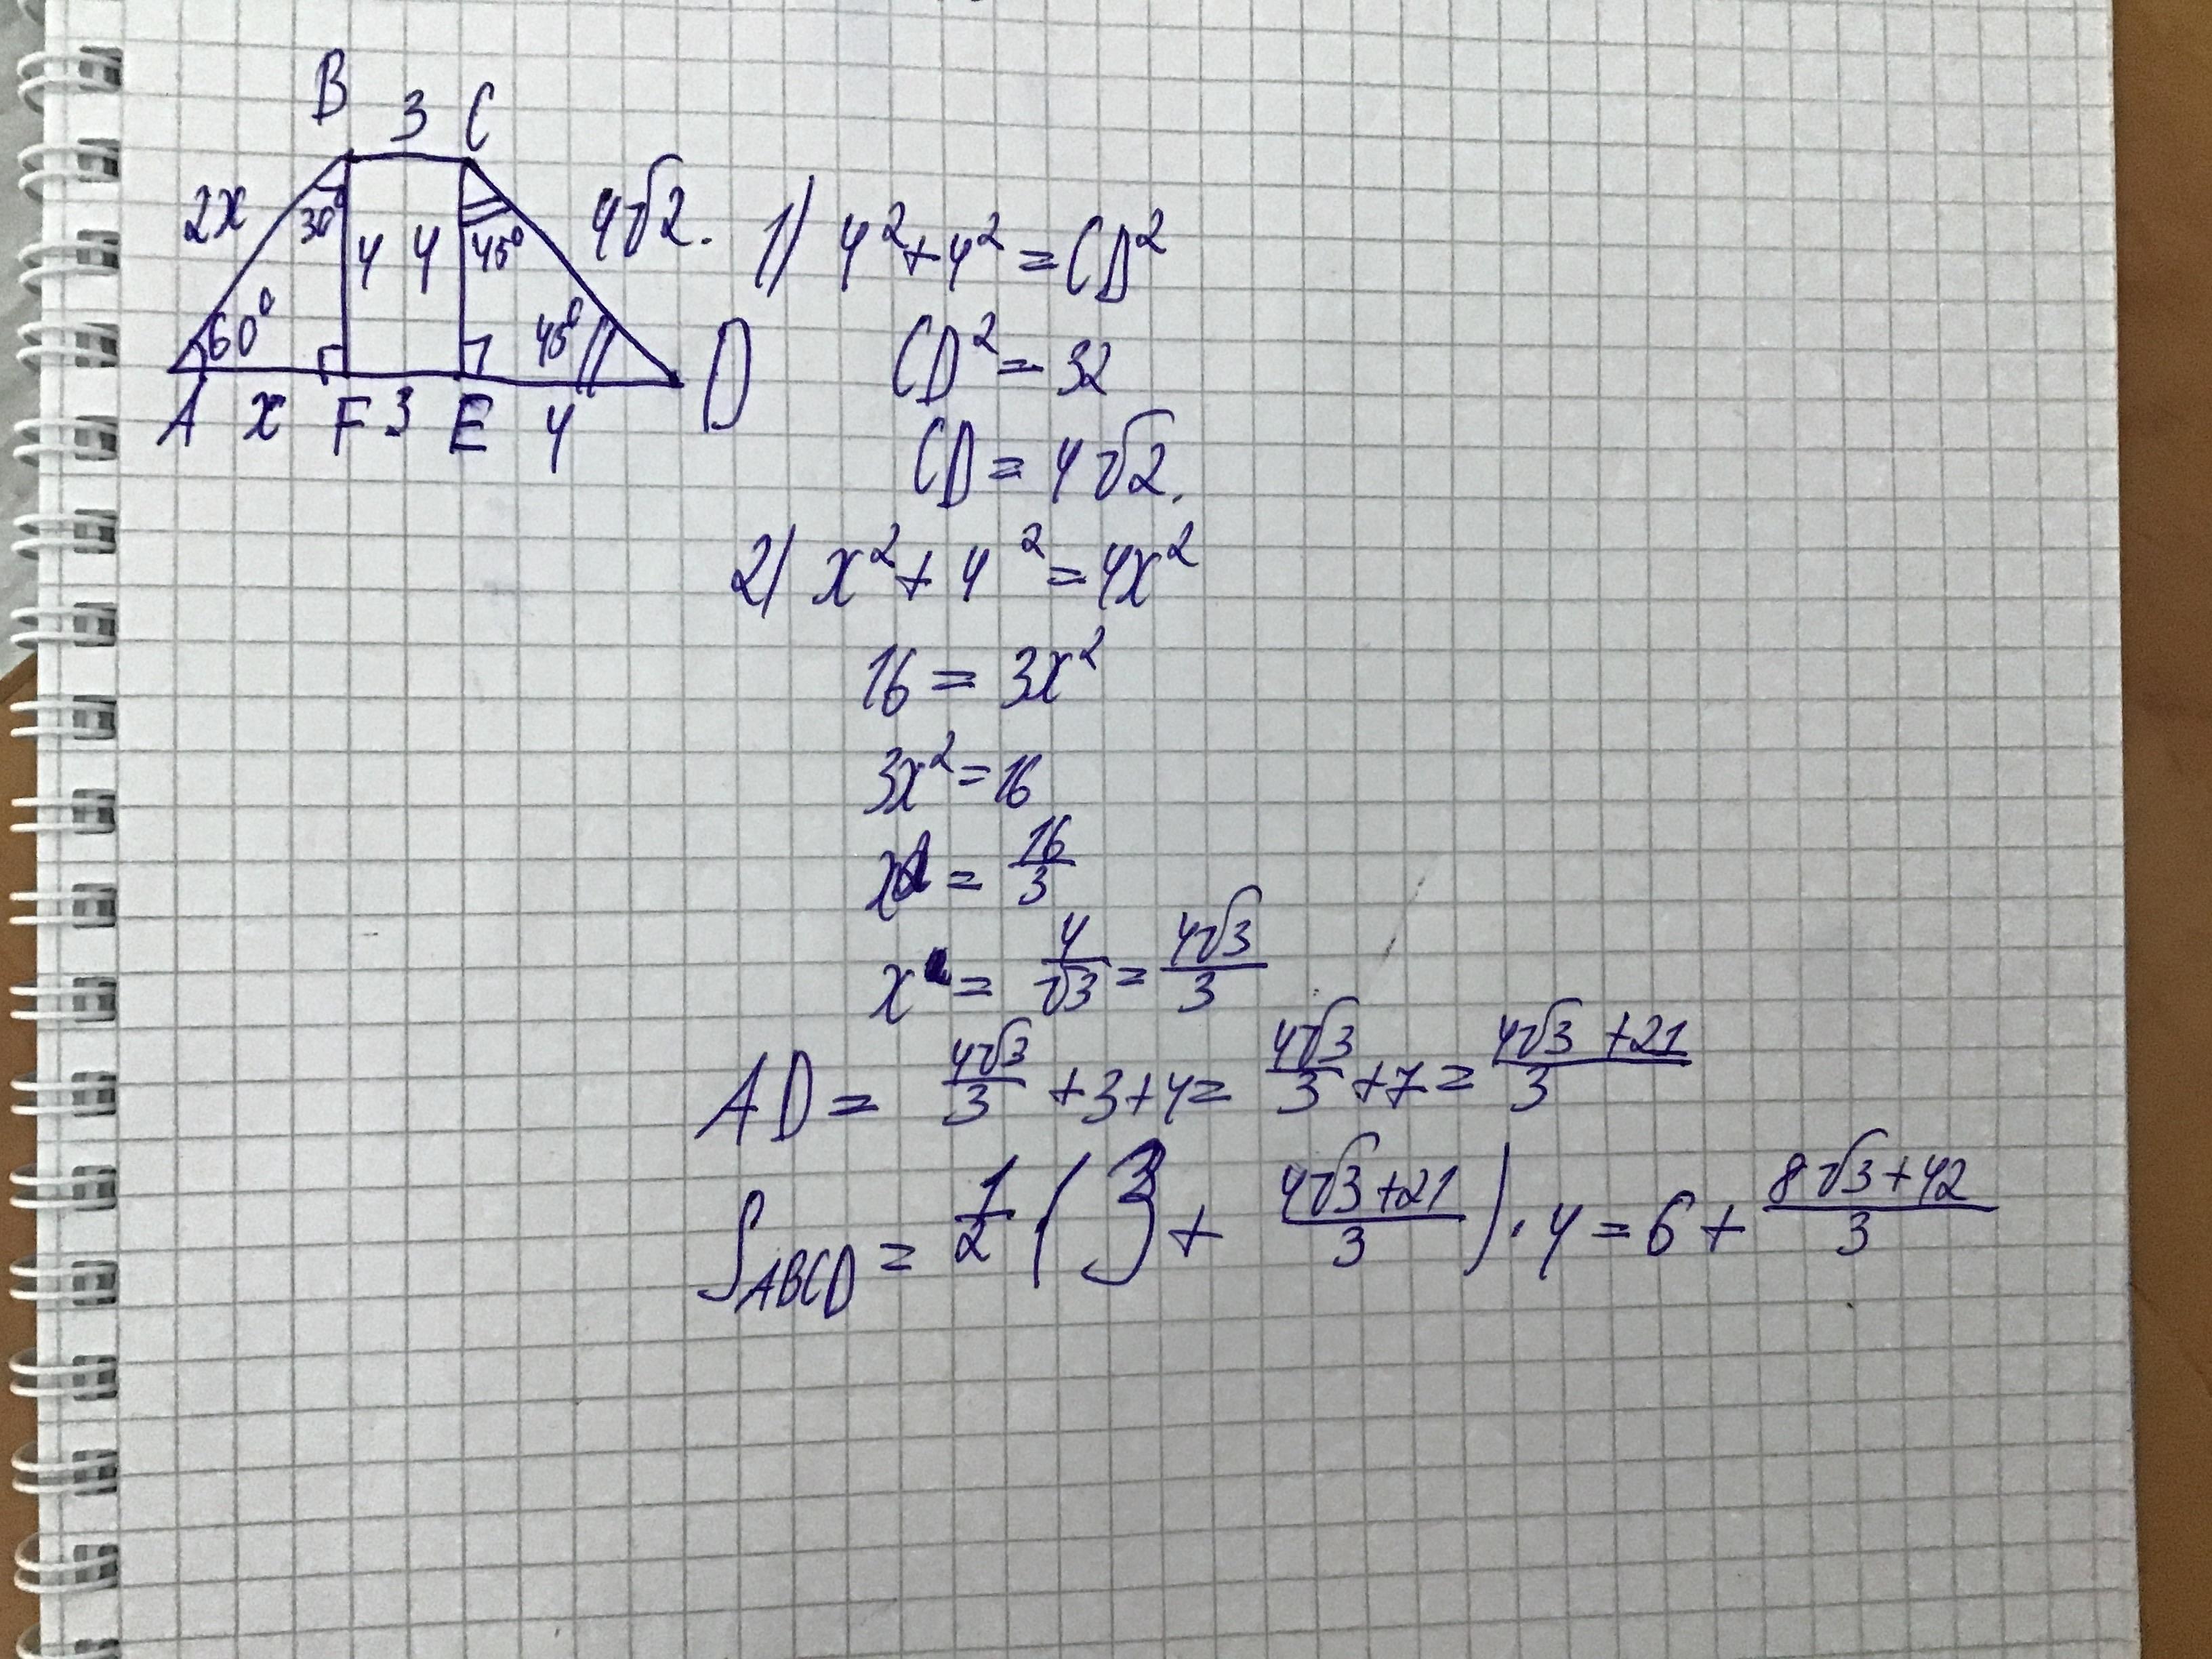 B 3 C
2x 30° 4 4 45° 4√2.
60° 45°
A x F 3 E 4 D
1) 4² + 4² = CD²
CD² = 32
CD = 4√2.
2) x² + 4² = 4x²
16 = 3x²
3x² = 16
x = 16/3
x = 4/√3 = 4√3/3
AD = 4√3/3 + 3 + 4 = 4√3/3 + 7 = (4√3 + 21)/3
S ABCD = 1/2 (3 + (4√3 + 21)/3) · 4 = 6 + (8√3 + 42)/3